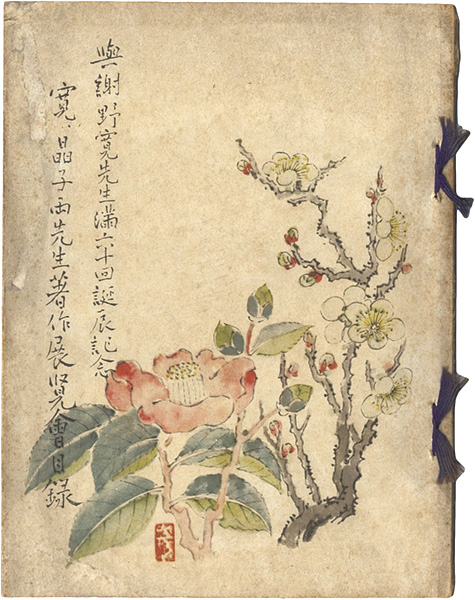 與謝野寛先生滿六十回誕辰記念
寛、晶子両先生著作展覧會目録